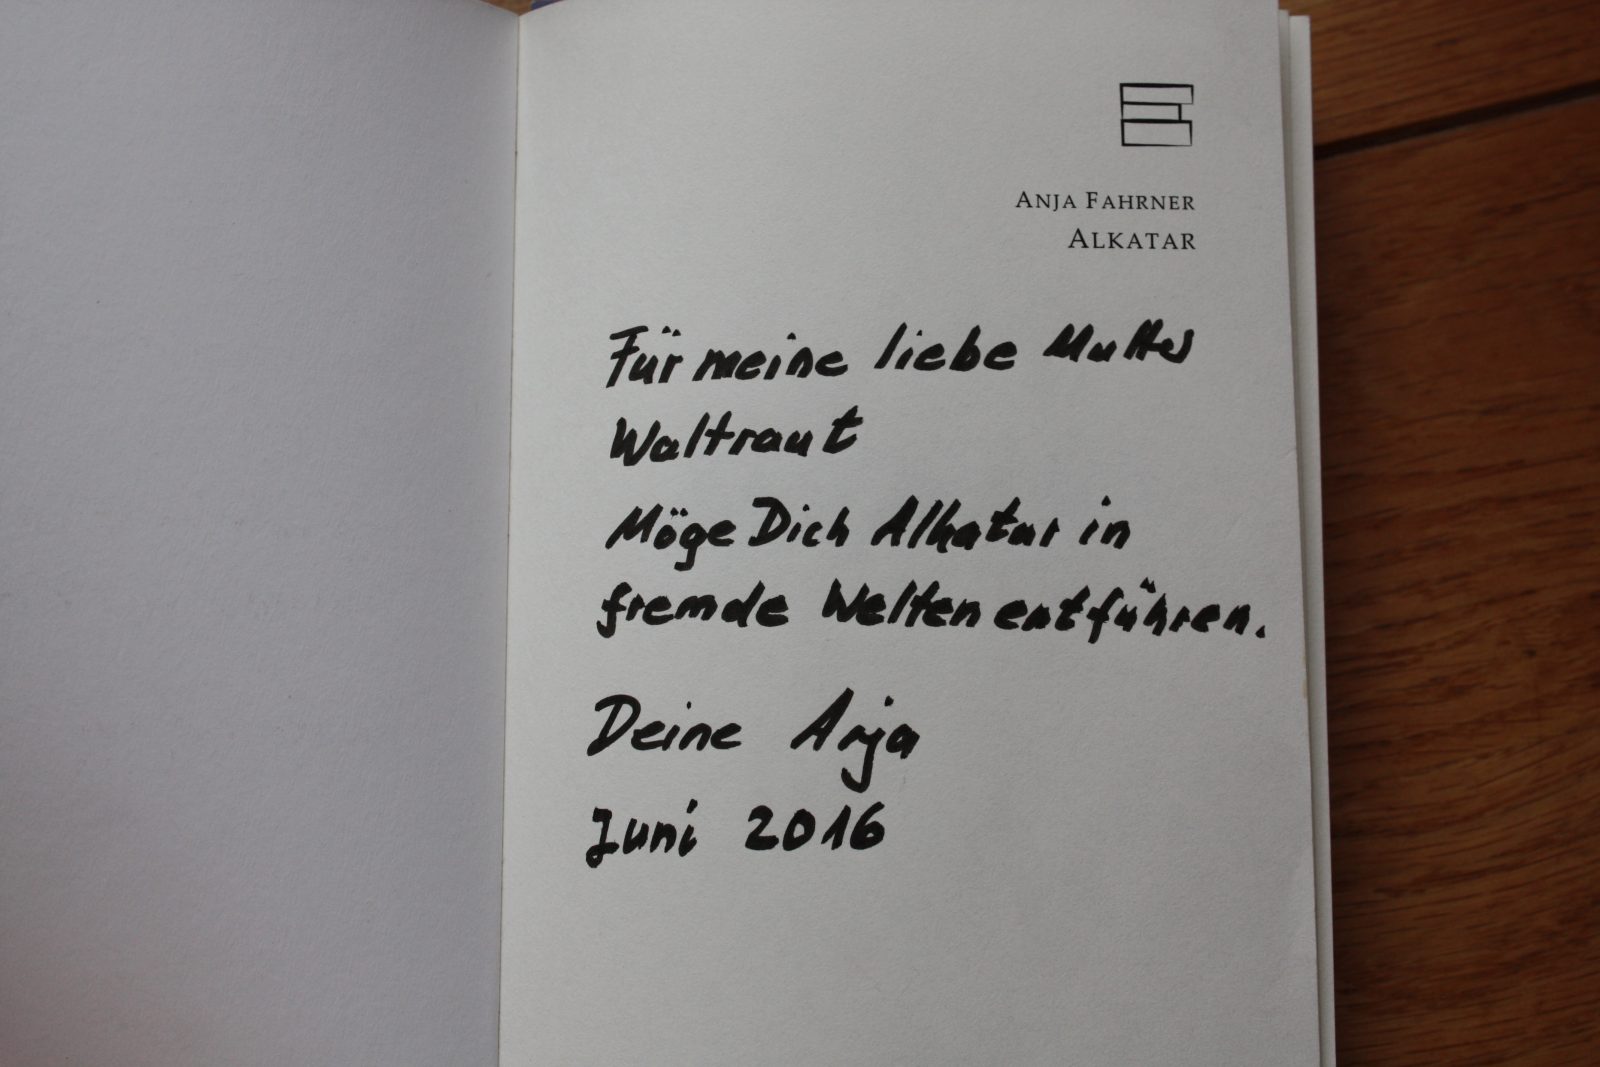 ANJA FAHRNER
ALKATAR
Für meine liebe Mutter
Waltraut
Möge Dich Alkatar in
fremde Welten entführen.
Deine Anja
Juni 2016